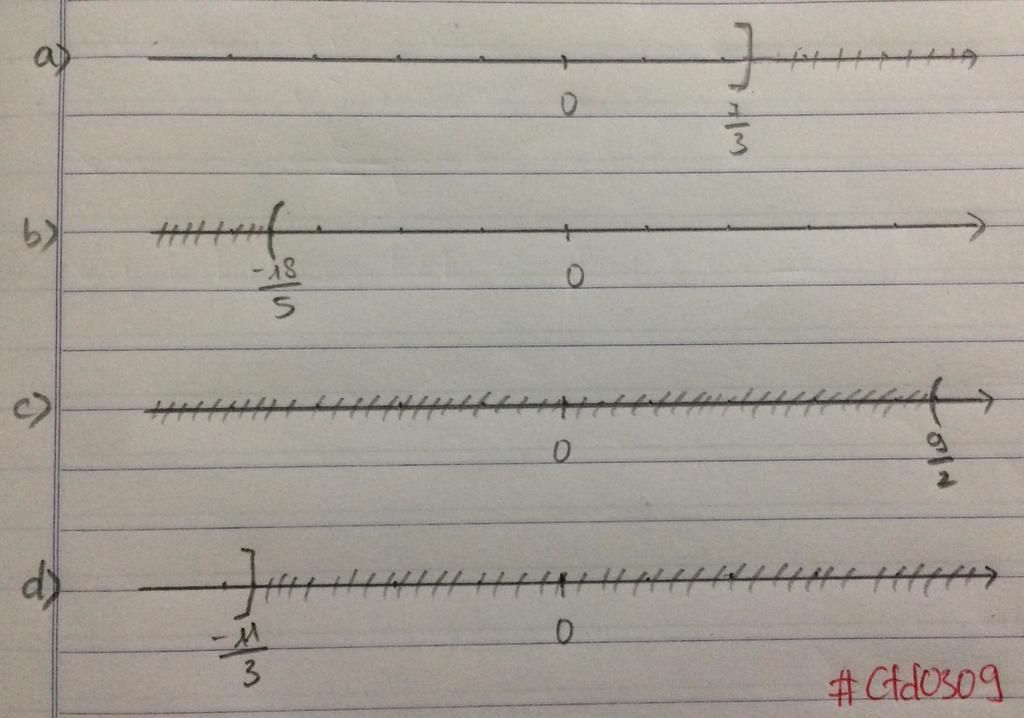 a)
0
7/3
b)
-18/5
0
c)
0
9/2
d)
-11/3
0
#Ctd0309